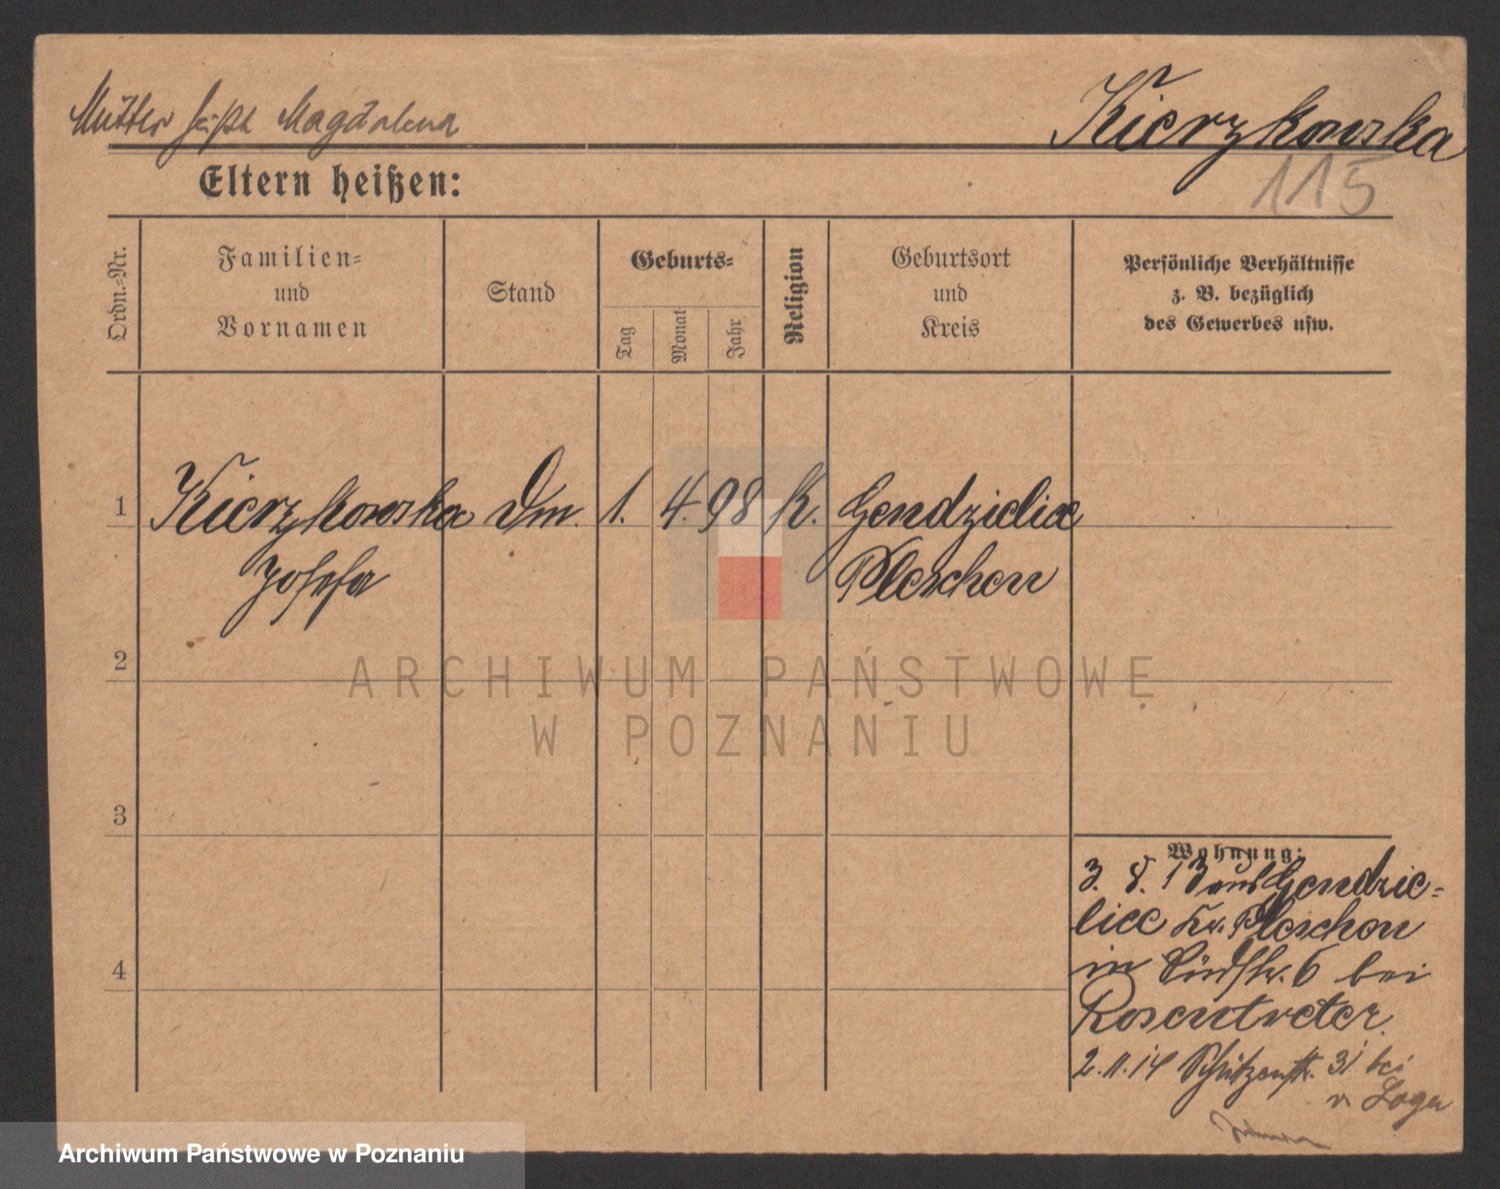 Kierzkowska
Mutter heißt Magdalena
115
Eltern heißen:
Ordn.-Nr.
Familien-
und
Vornamen
Stand
Geburts-
Tag
Monat
Jahr
Religion
Geburtsort
und
Kreis
Persönliche Verhältnisse
z. B. bezüglich
des Gewerbes usw.
1 Kierzkowska Dm. 1. 4. 98 K. Gendzielice
Josefa Pleschen
2
ARCHIWUM PAŃSTWOWE
W POZNANIU
3
Wohnung:
3. 8. 13 aus Gendzie-
lice Kr. Pleschen
4
in Südstr. 6 bei
Rosentreter.
2.11.14 Schützenstr. 31 bei
v.
Archiwum Państwowe w Poznaniu